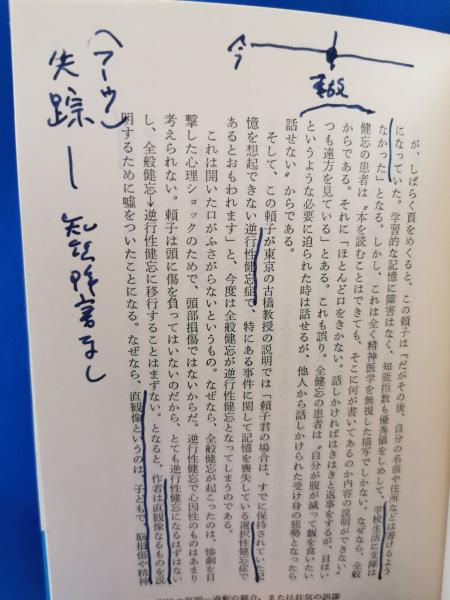 今
事故
(フーグ)
失踪 — 知的障害なし
が、しばらく頁をめくると、この頼子は「だがその後、自分の名前や住所などは書けるよう
になっていた。学習的な記憶に障害はなく、知能指数も優秀値をしめして、学校生活に支障は
なかった」となる。しかし、これは全く精神医学を無視した描写でしかない。なぜなら、全般
健忘の患者は〝本を読むことはできても、そこに何が書いてあるのか内容の説明ができない〟
からである。それに「ほとんど口をきかない。話しかければはきはきと返事をするが、目はい
つも遠方を見ている」とある。これも誤り。全健忘の患者は〝自分が腹が減って飯を食いたい
というような必要に迫られた時は話せるが、他人から話しかけられた受け身の態勢となったら
話せない〟からである。
そして、この頼子が東京の古橋教授の説明では「頼子君の場合は、すでに保持されていた記
憶を想起できない逆行性健忘症で、特にある事件に関して記憶を喪失している選択性健忘症で
あるとおもわれます」と、今度は全般健忘が逆行性健忘となってしまうのである。
これは開いた口がふさがらないというもの。なぜなら、全般健忘が起こったのは、惨劇を目
撃した心理ショックのためで、頭部損傷ではないからだ。逆行性健忘で心因性のものはあまり
考えられない。頼子は頭に傷を負ってはいないのだから、とても逆行性健忘になるはずはない
し、全般健忘→逆行性健忘に移行することはまずない。となると、作者は直観像なるものを説
明するために嘘をついたことになる。なぜなら、直観像というのは、子どもで、脳損傷や精神